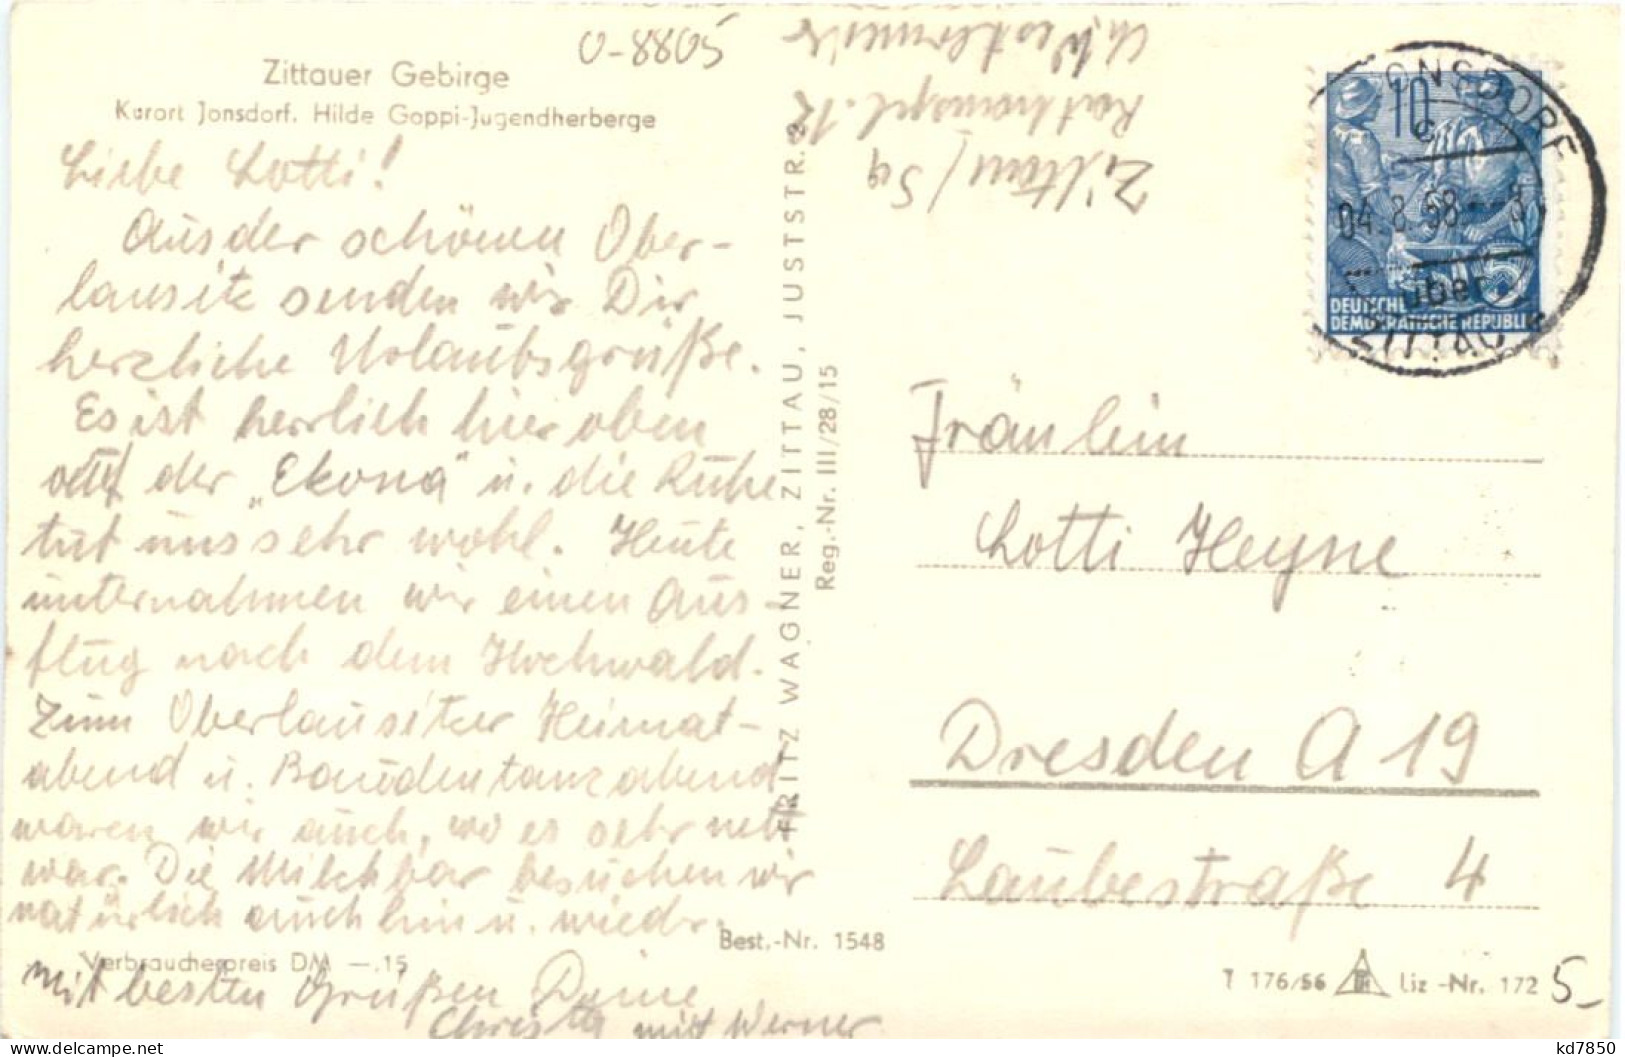 O-8805
Zittauer Gebirge
Kurort Jonsdorf. Hilde Goppi-Jugendherberge
Liebe Lotti!
Aus der schönen Ober-
lausitz senden wir Dir
herzliche Urlaubsgrüße.
Es ist herrlich hier oben
auf der „Ekona" u. die Ruhe
tut uns sehr wohl. Heute
unternahmen wir einen Aus-
flug nach dem Hochwald.
Zum Oberlausitzer Heimat-
abend u. Baudentanzabend
waren wir auch, wo es sehr nett
war. Die Milchbar besuchen wir
natürlich auch hin u. wieder.
Verbraucherpreis DM —.15
mit besten Grüßen Deine
Christa mit Werner
FRITZ WAGNER, ZITTAU, JUSTSTR. 2
Reg.-Nr. III/28/15
Best.-Nr. 1548
Rathenaupl. 12
Zittau/Sa
10
DEUTSCHE
DEMOKRATISCHE REPUBLIK
ONSDORF
04.8.58
über
ZITTAU
Fräulein
Lotti Heyne
Dresden A 19
Laubestraße 4
T 176/56 Liz-Nr. 172
5-
kd7850